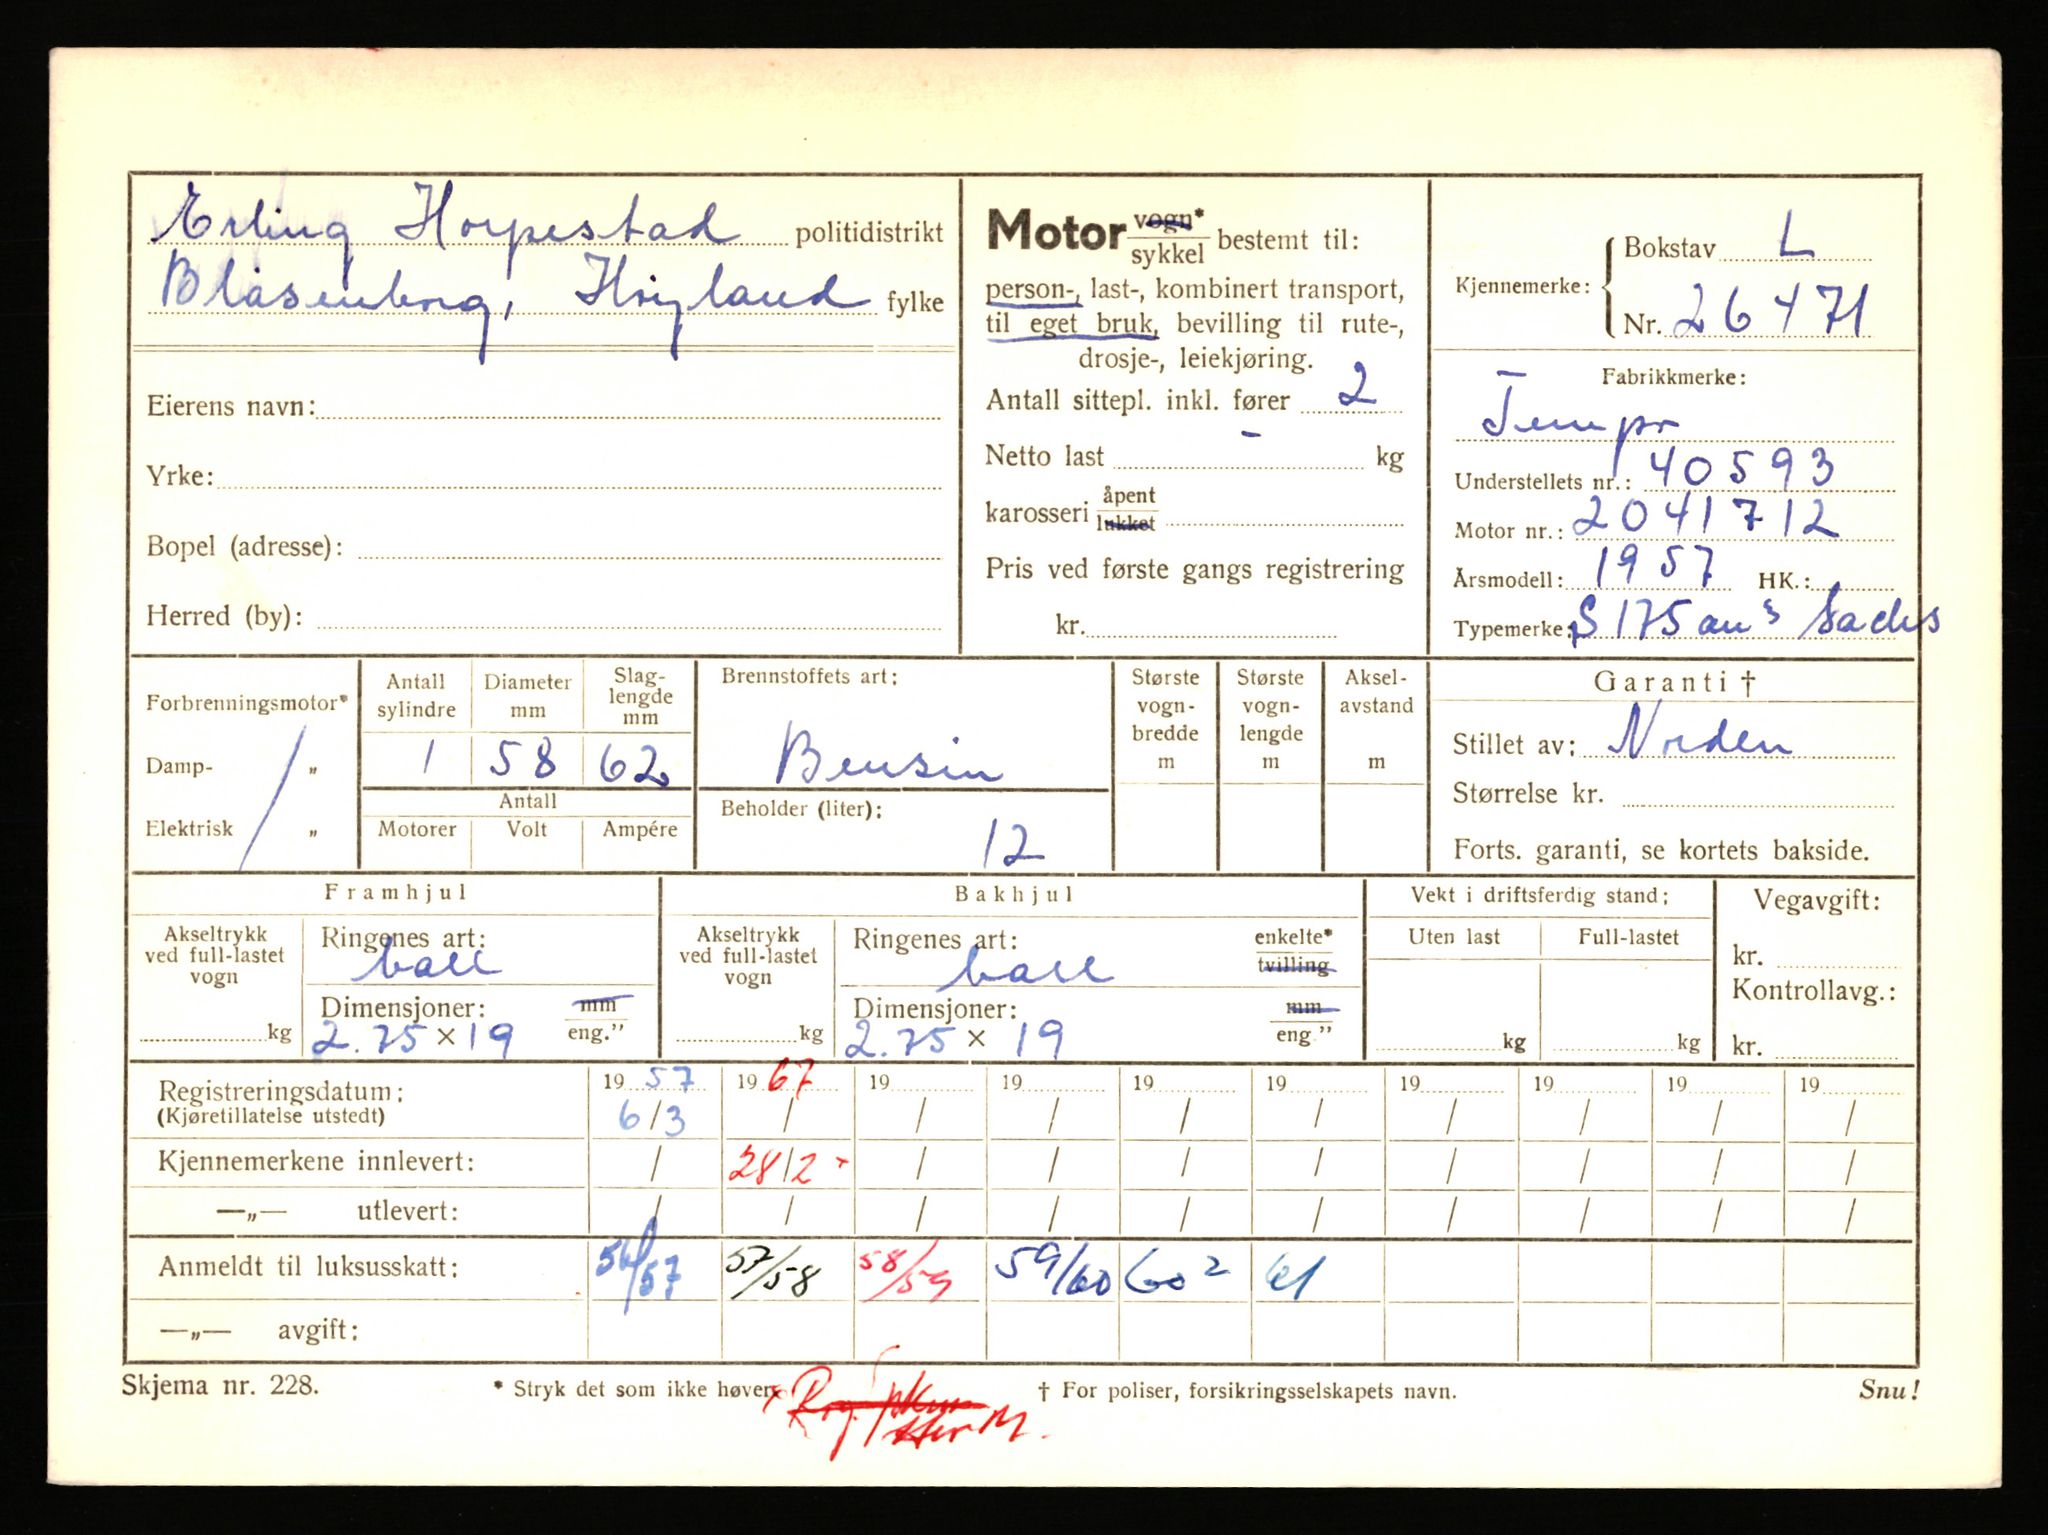 Erling Horpestad politidistrikt
Blåsenborg, Høyland fylke
Eierens navn:
Yrke:
Bopel (adresse):
Herred (by):
Motor vogn* sykkel bestemt til:
person-, last-, kombinert transport,
til eget bruk, bevilling til rute-,
drosje-, leiekjøring.
Antall sittepl. inkl. fører 2
Netto last - kg
karosseri åpent lukket
Pris ved første gangs registrering
kr.
Kjennemerke: Bokstav L
Nr. 26471
Fabrikkmerke:
Tempo
Understellets nr.: 40593
Motor nr.: 2041712
Årsmodell: 1957 HK.:
Typemerke: S 175 Sachs
Forbrenningsmotor*
Damp- „
Elektrisk „
Antall sylindre
Diameter mm
Slag- lengde mm
1 58 62
Antall
Motorer Volt Ampére
Brennstoffets art:
Bensin
Beholder (liter):
12
Største vogn- bredde m
Største vogn- lengde m
Aksel- avstand m
Garanti †
Stillet av: Norden
Størrelse kr.
Forts. garanti, se kortets bakside.
Framhjul
Akseltrykk ved full-lastet vogn
kg
Ringenes art:
ball
Dimensjoner: mm
2.75 x 19 eng."
Bakhjul
Akseltrykk ved full-lastet vogn
kg
Ringenes art: enkelte*
ball tvilling
Dimensjoner: mm
2.75 x 19 eng."
Vekt i driftsferdig stand:
Uten last Full-lastet
kg kg
Vegavgift:
kr.
Kontrollavg.:
kr.
Registreringsdatum: 19 57 19 67 19 19 19 19 19 19 19 19
(Kjøretillatelse utstedt) 6/3 / / / / / / / / /
Kjennemerkene innlevert: / 28/2 x / / / / / / / /
—„— utlevert: / / / / / / / / / /
Anmeldt til luksusskatt: 56/57 57/58 58/59 59/60 60 2 61
—„— avgift:
Skjema nr. 228.
* Stryk det som ikke høver.
† For poliser, forsikringsselskapets navn.
Snu!